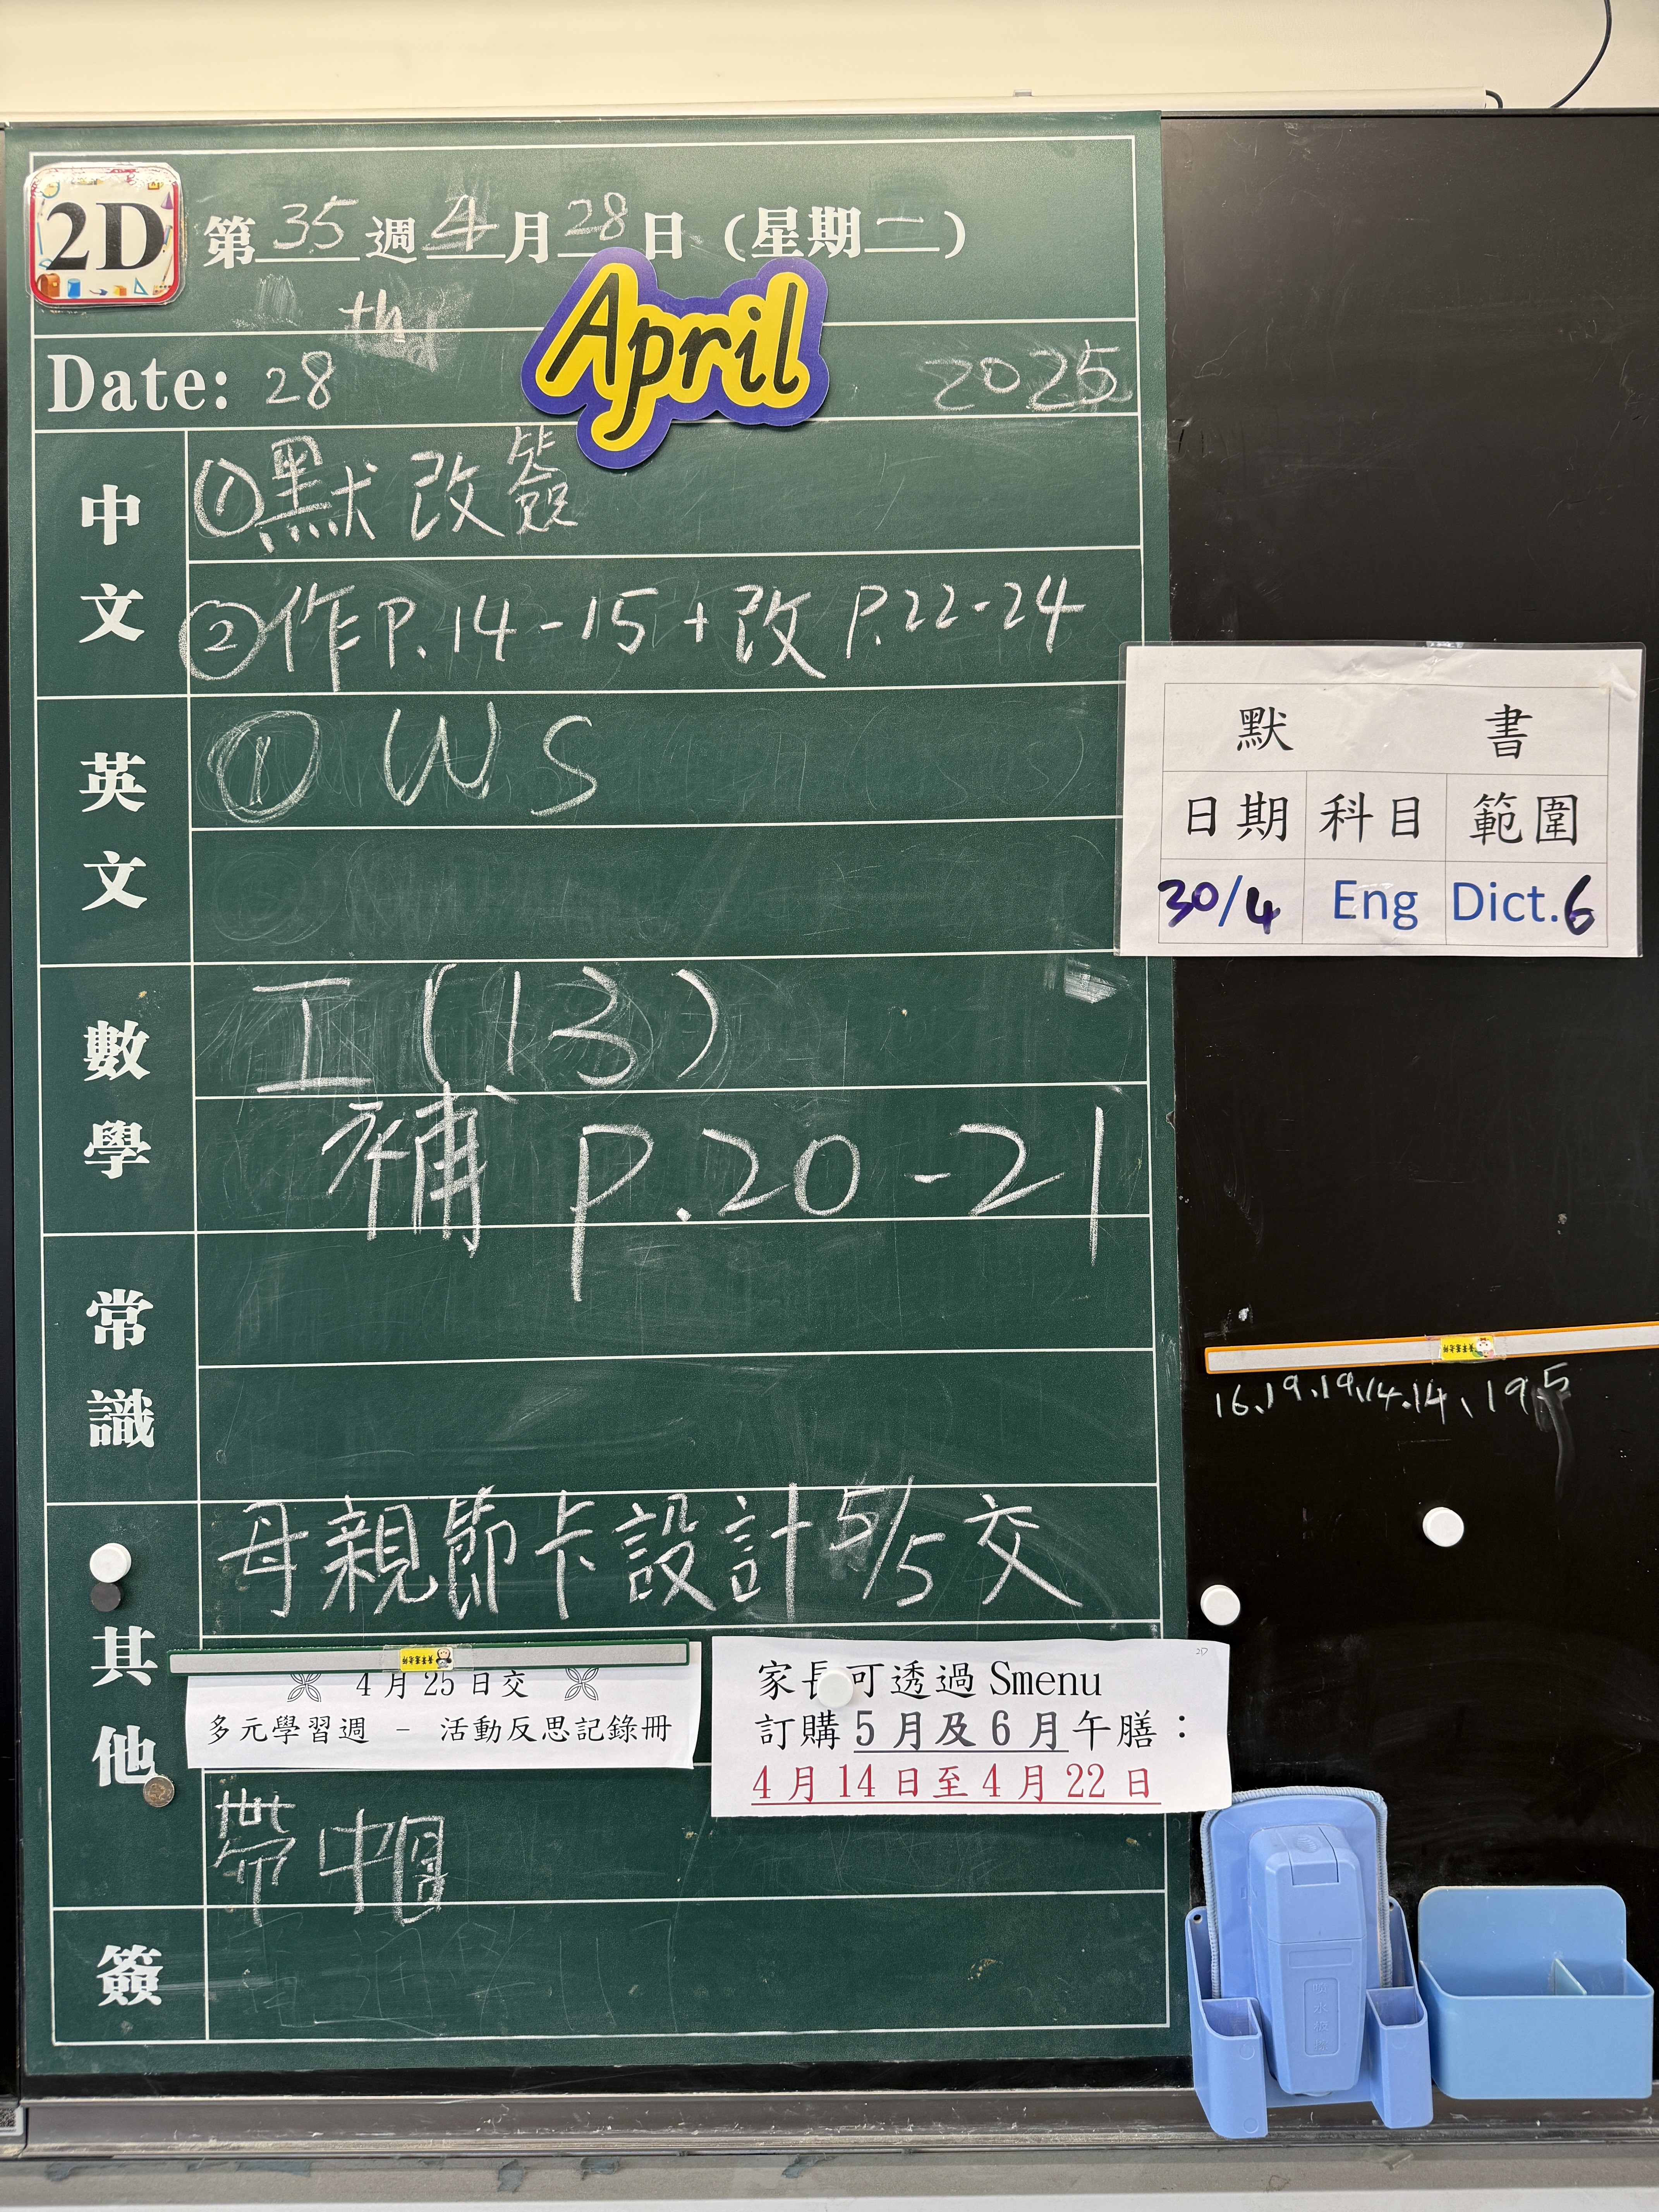 2D
第35週4月28日（星期二）
th
Date: 28 April 2025
中文
①默改簽
②作P.14-15+改P.22-24
英文
① W.S
數學
工(13)
補 P.20-21
常識
其他
母親節卡設計5/5交
4月25日交
多元學習週 – 活動反思記錄冊
家長可透過 Smenu
訂購5月及6月午膳：
4月14日至4月22日
帶中
簽
默書
日期 科目 範圍
30/4 Eng Dict.6
16.19.19.14.14、19.5